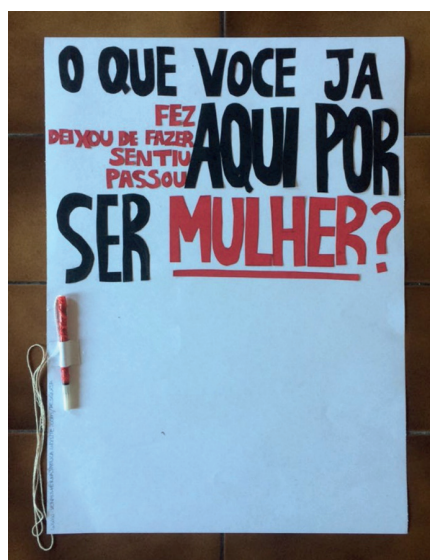 O QUE VOCE JA
FEZ
DEIXOU DE FAZER
SENTIU
PASSOU
AQUI POR
SER MULHER?